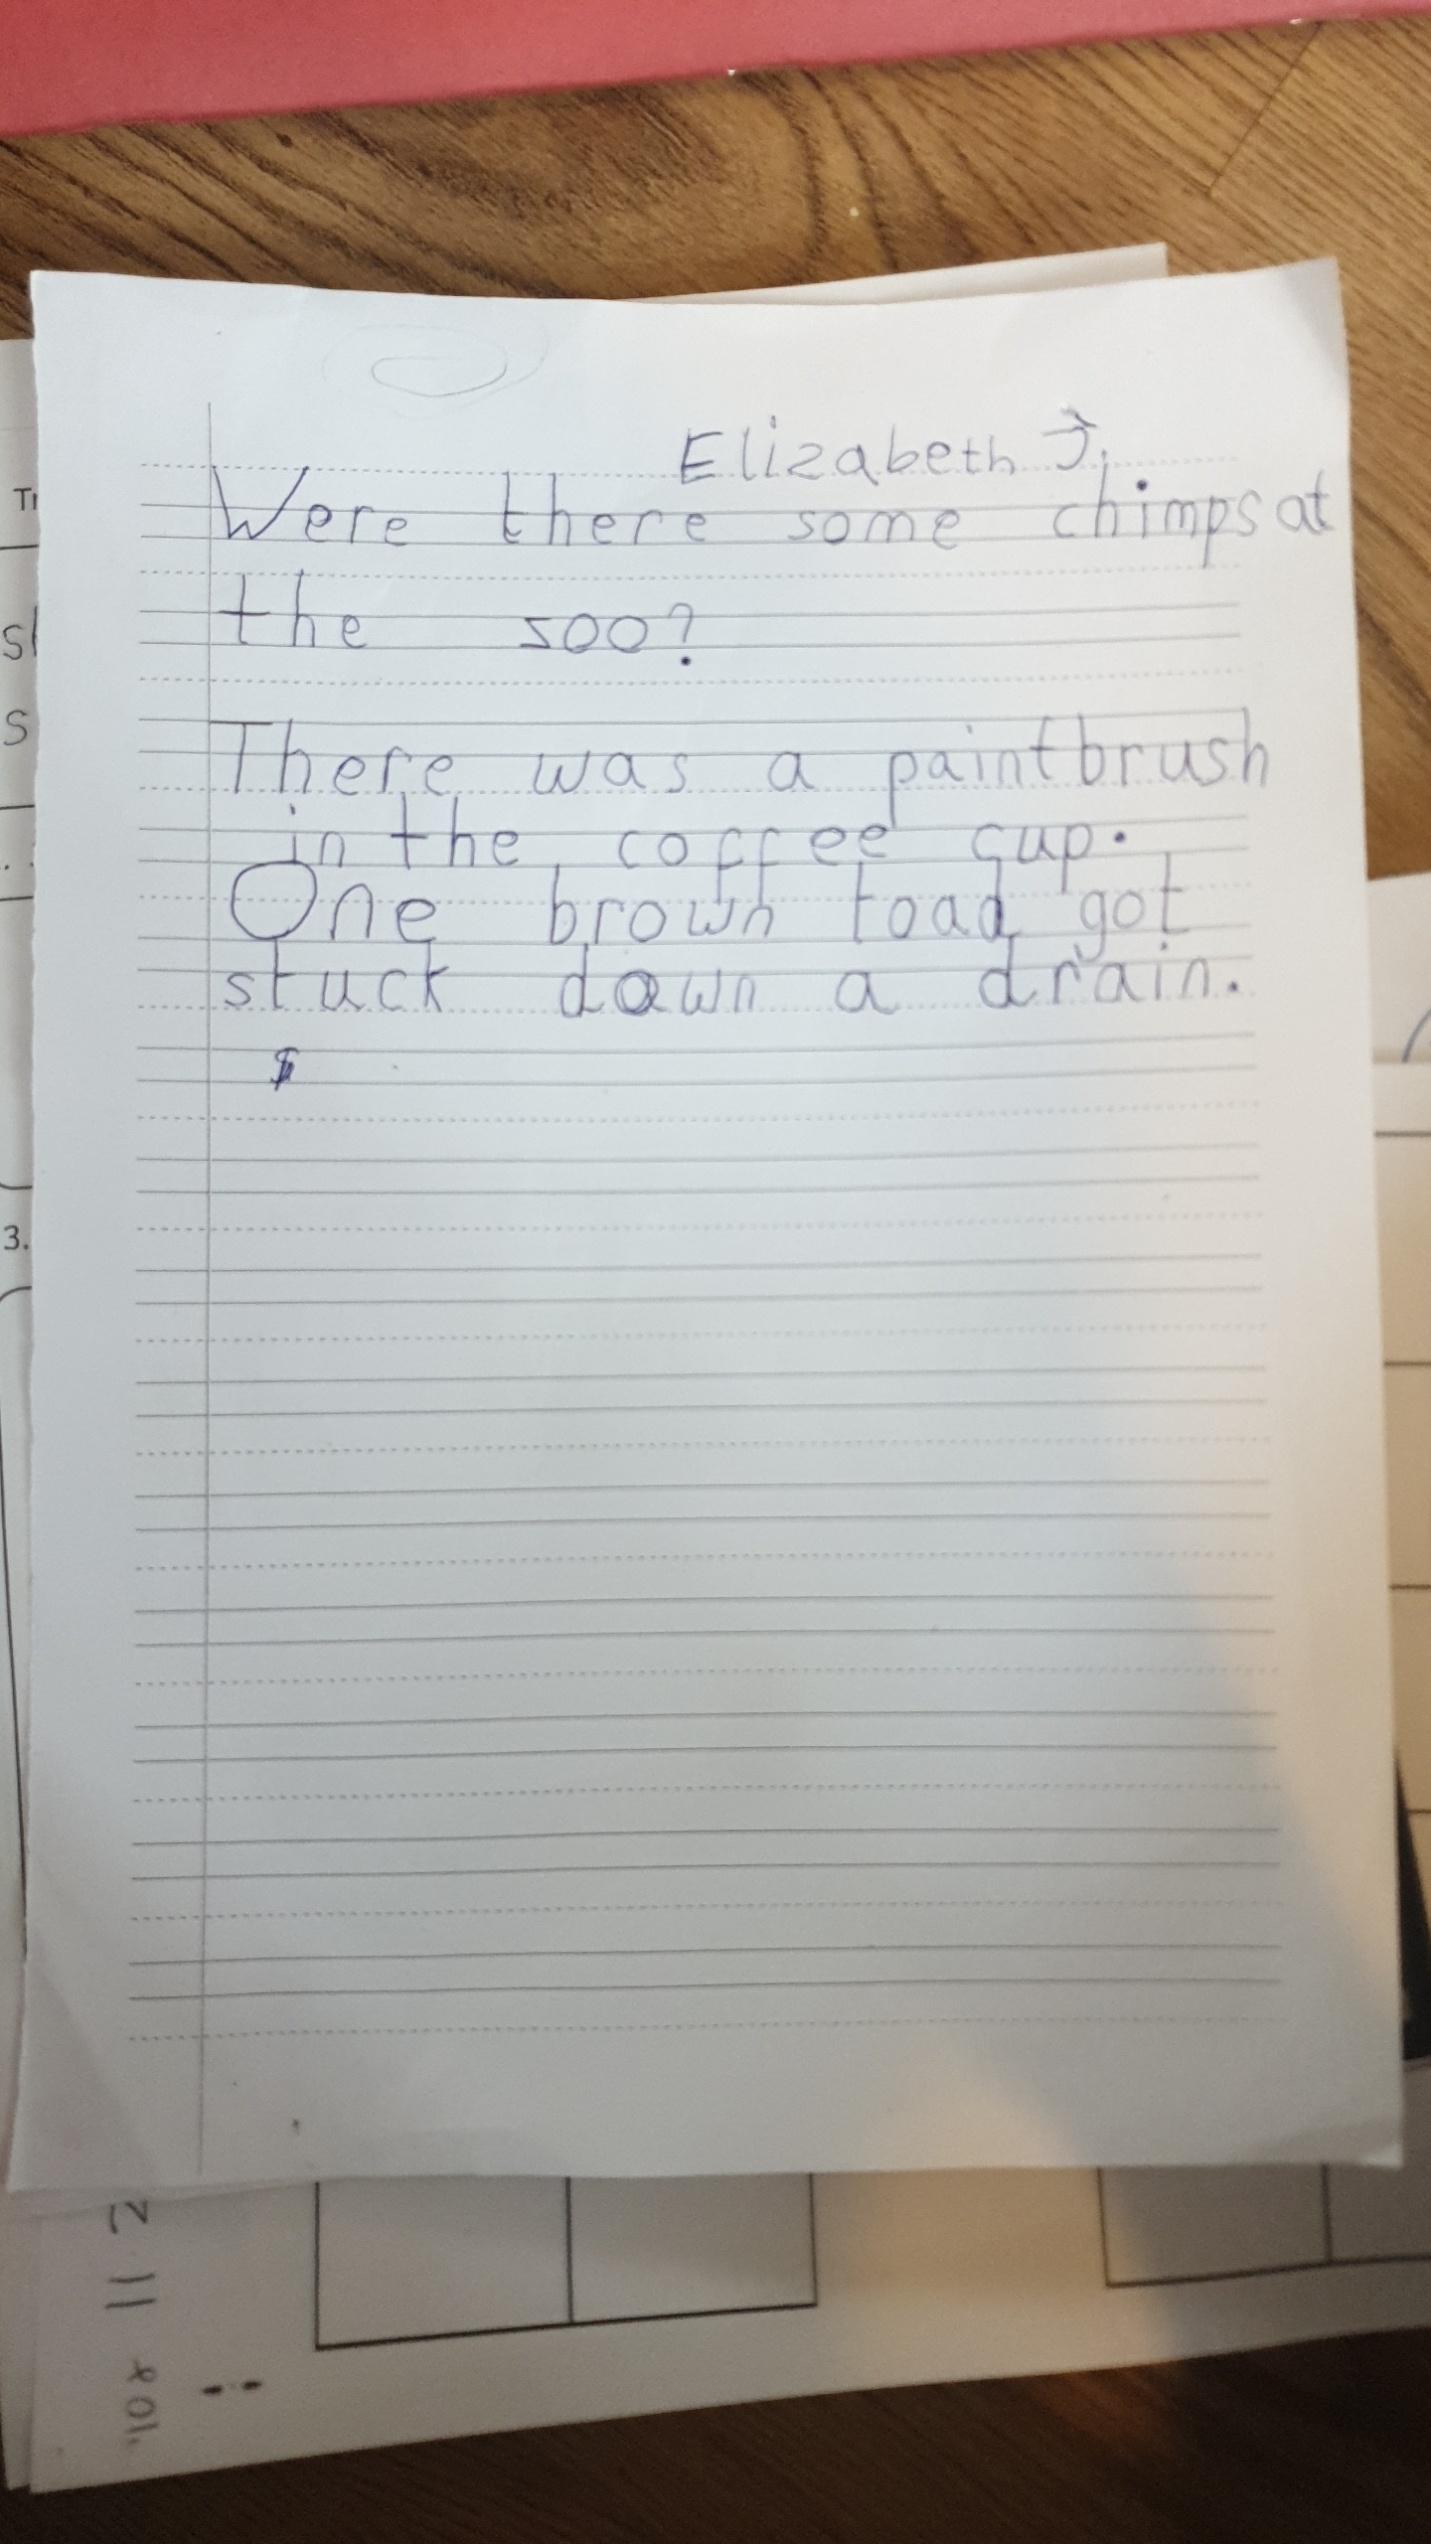 Elizabeth J.
Were there some chimps at
the soo?
There was a paintbrush
in the coffee cup.
One brown toad got
stuck down a drain.
3.